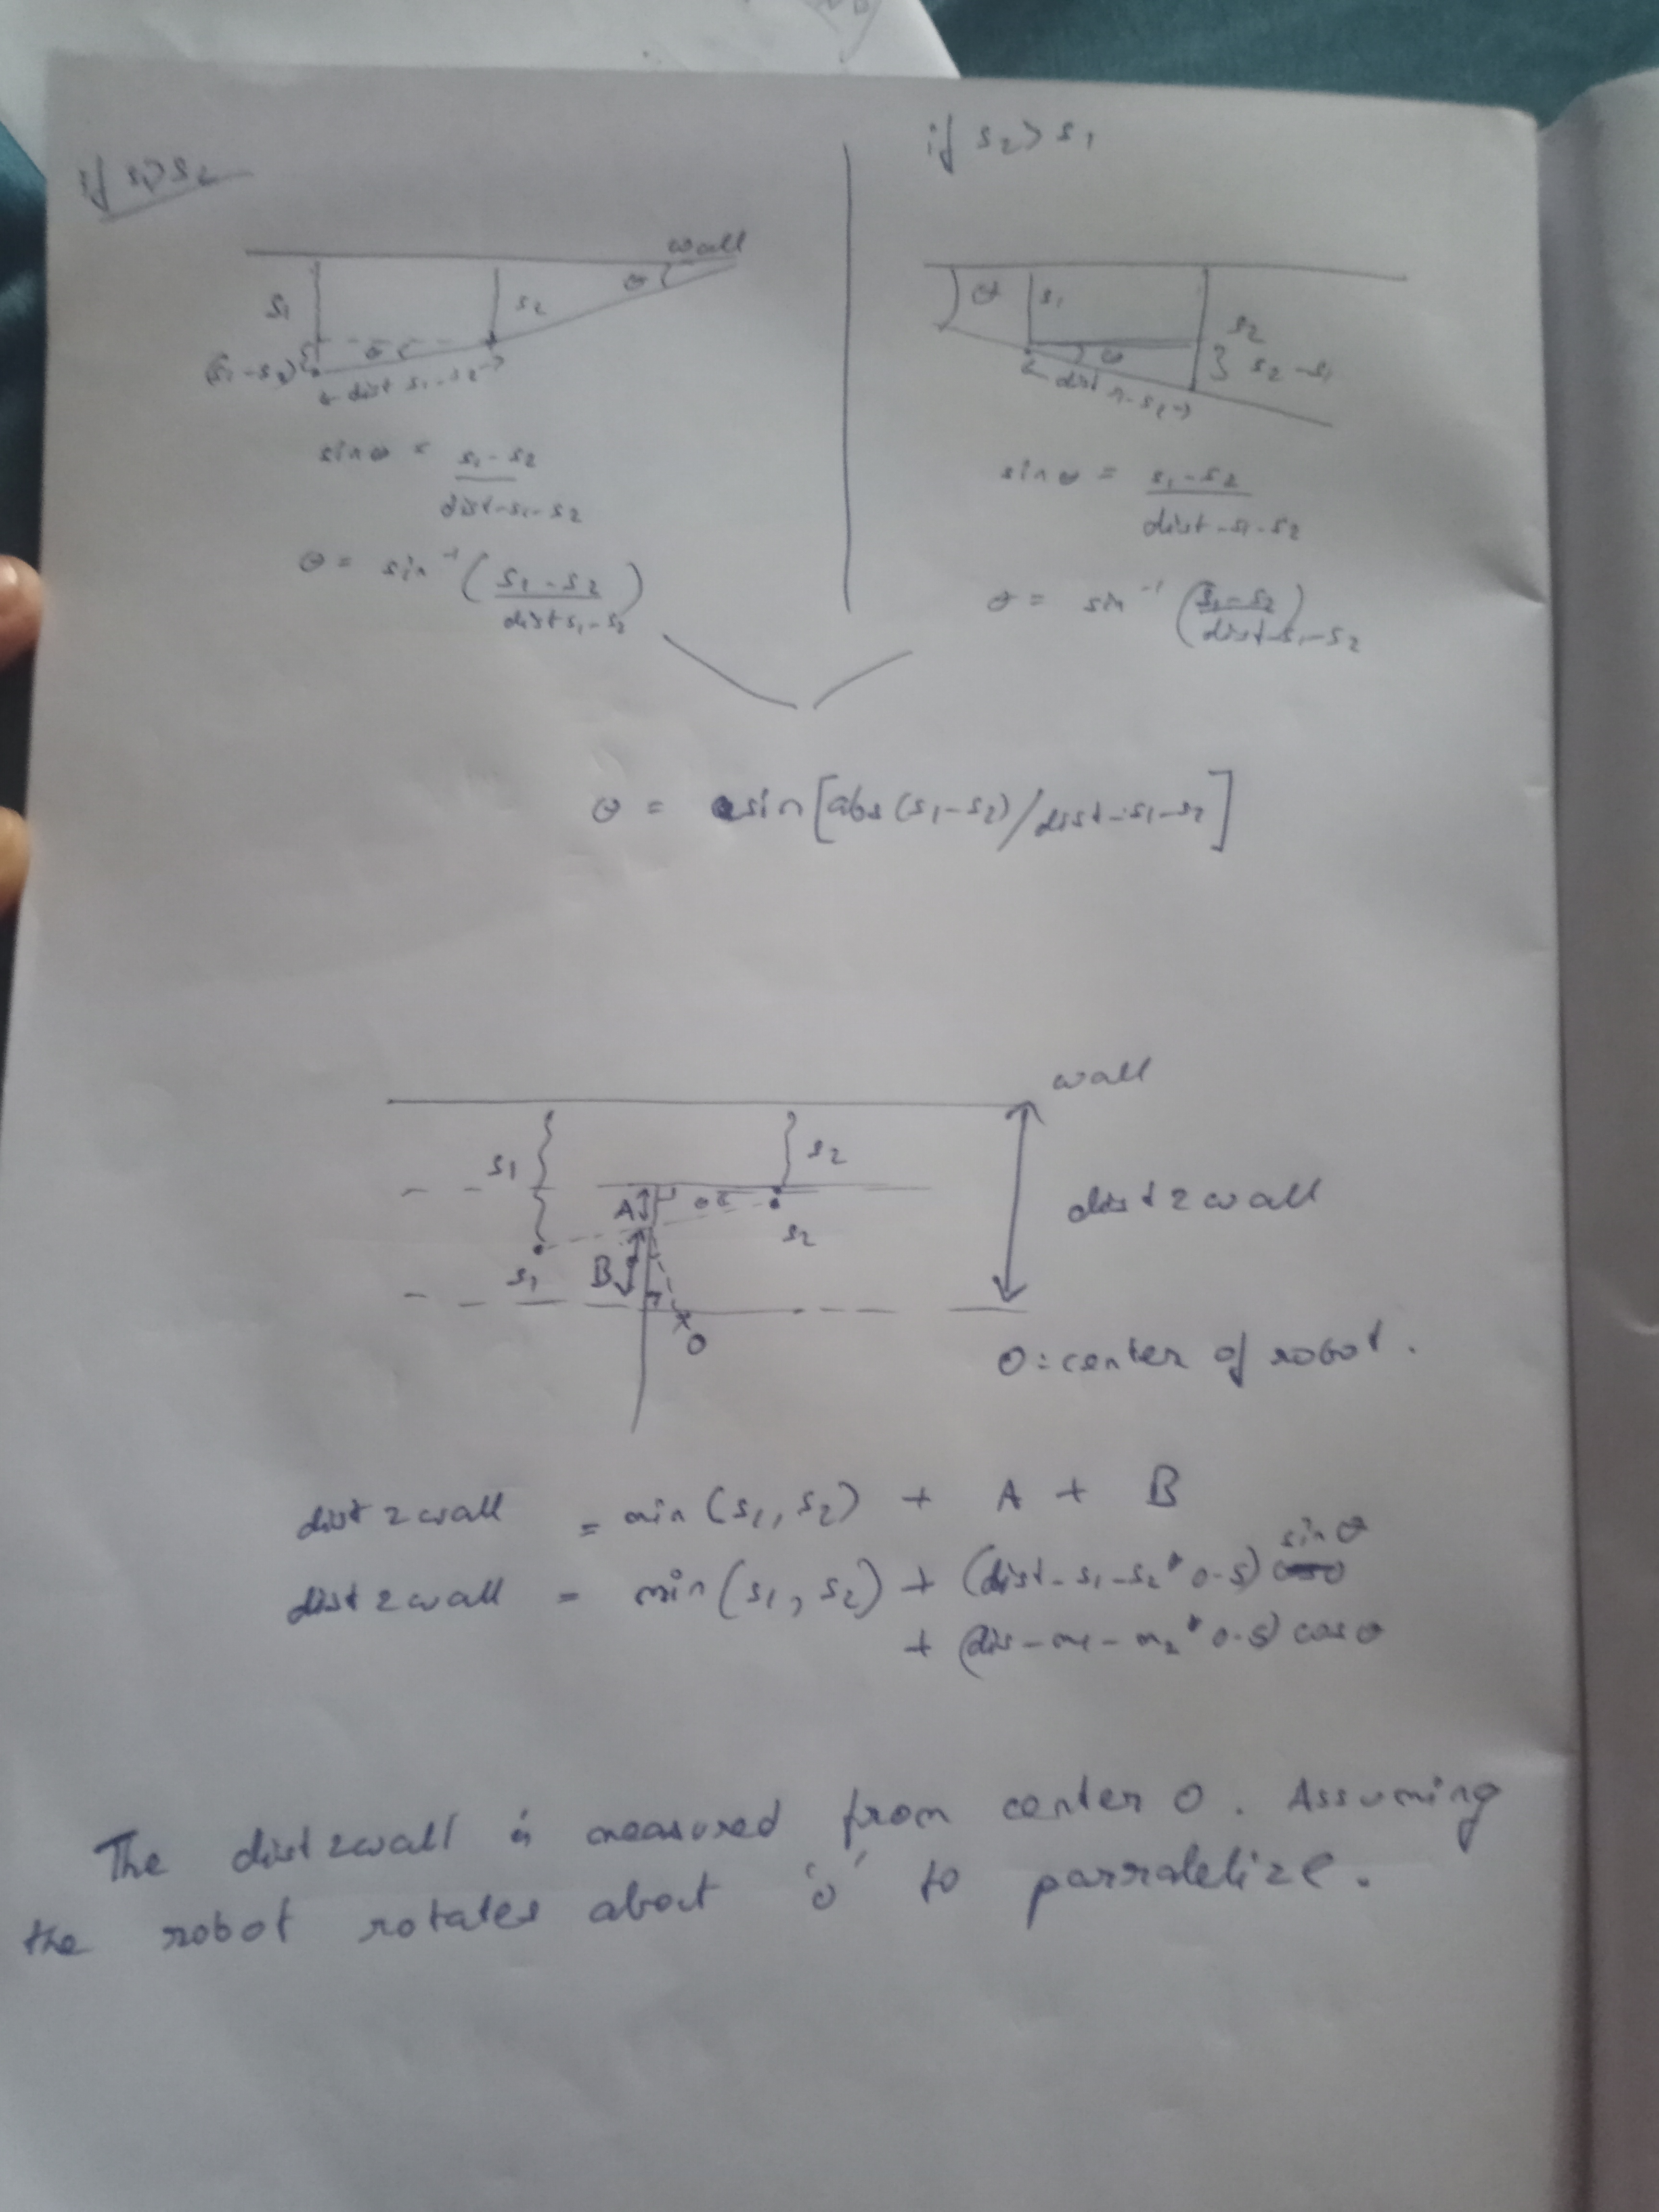 if s1>s2
wall
θ
s1
s2
(s1-s2)
θ
dist s1-s2
sinθ = s1-s2
dist-s1-s2
θ = sin⁻¹(s1-s2
dist s1-s2)
if s2>s1
θ
s1
s2
θ
s2-s1
dist s1-s2
sinθ = s1-s2
dist-s1-s2
θ = sin⁻¹(s1-s2
dist-s1-s2)
θ = asin[abs(s1-s2)/dist-s1-s2]
wall
s1
s2
A
s2
dist2wall
s1
B
O
O: center of robot.
dist2wall = min(s1, s2) + A + B
dist2wall = min(s1, s2) + (dist-s1-s2*0.5) sinθ
+ (dis-m1-m2*0.5) cosθ
The dist2wall is measured from center O. Assuming
the robot rotates about 'o' to parralelize.